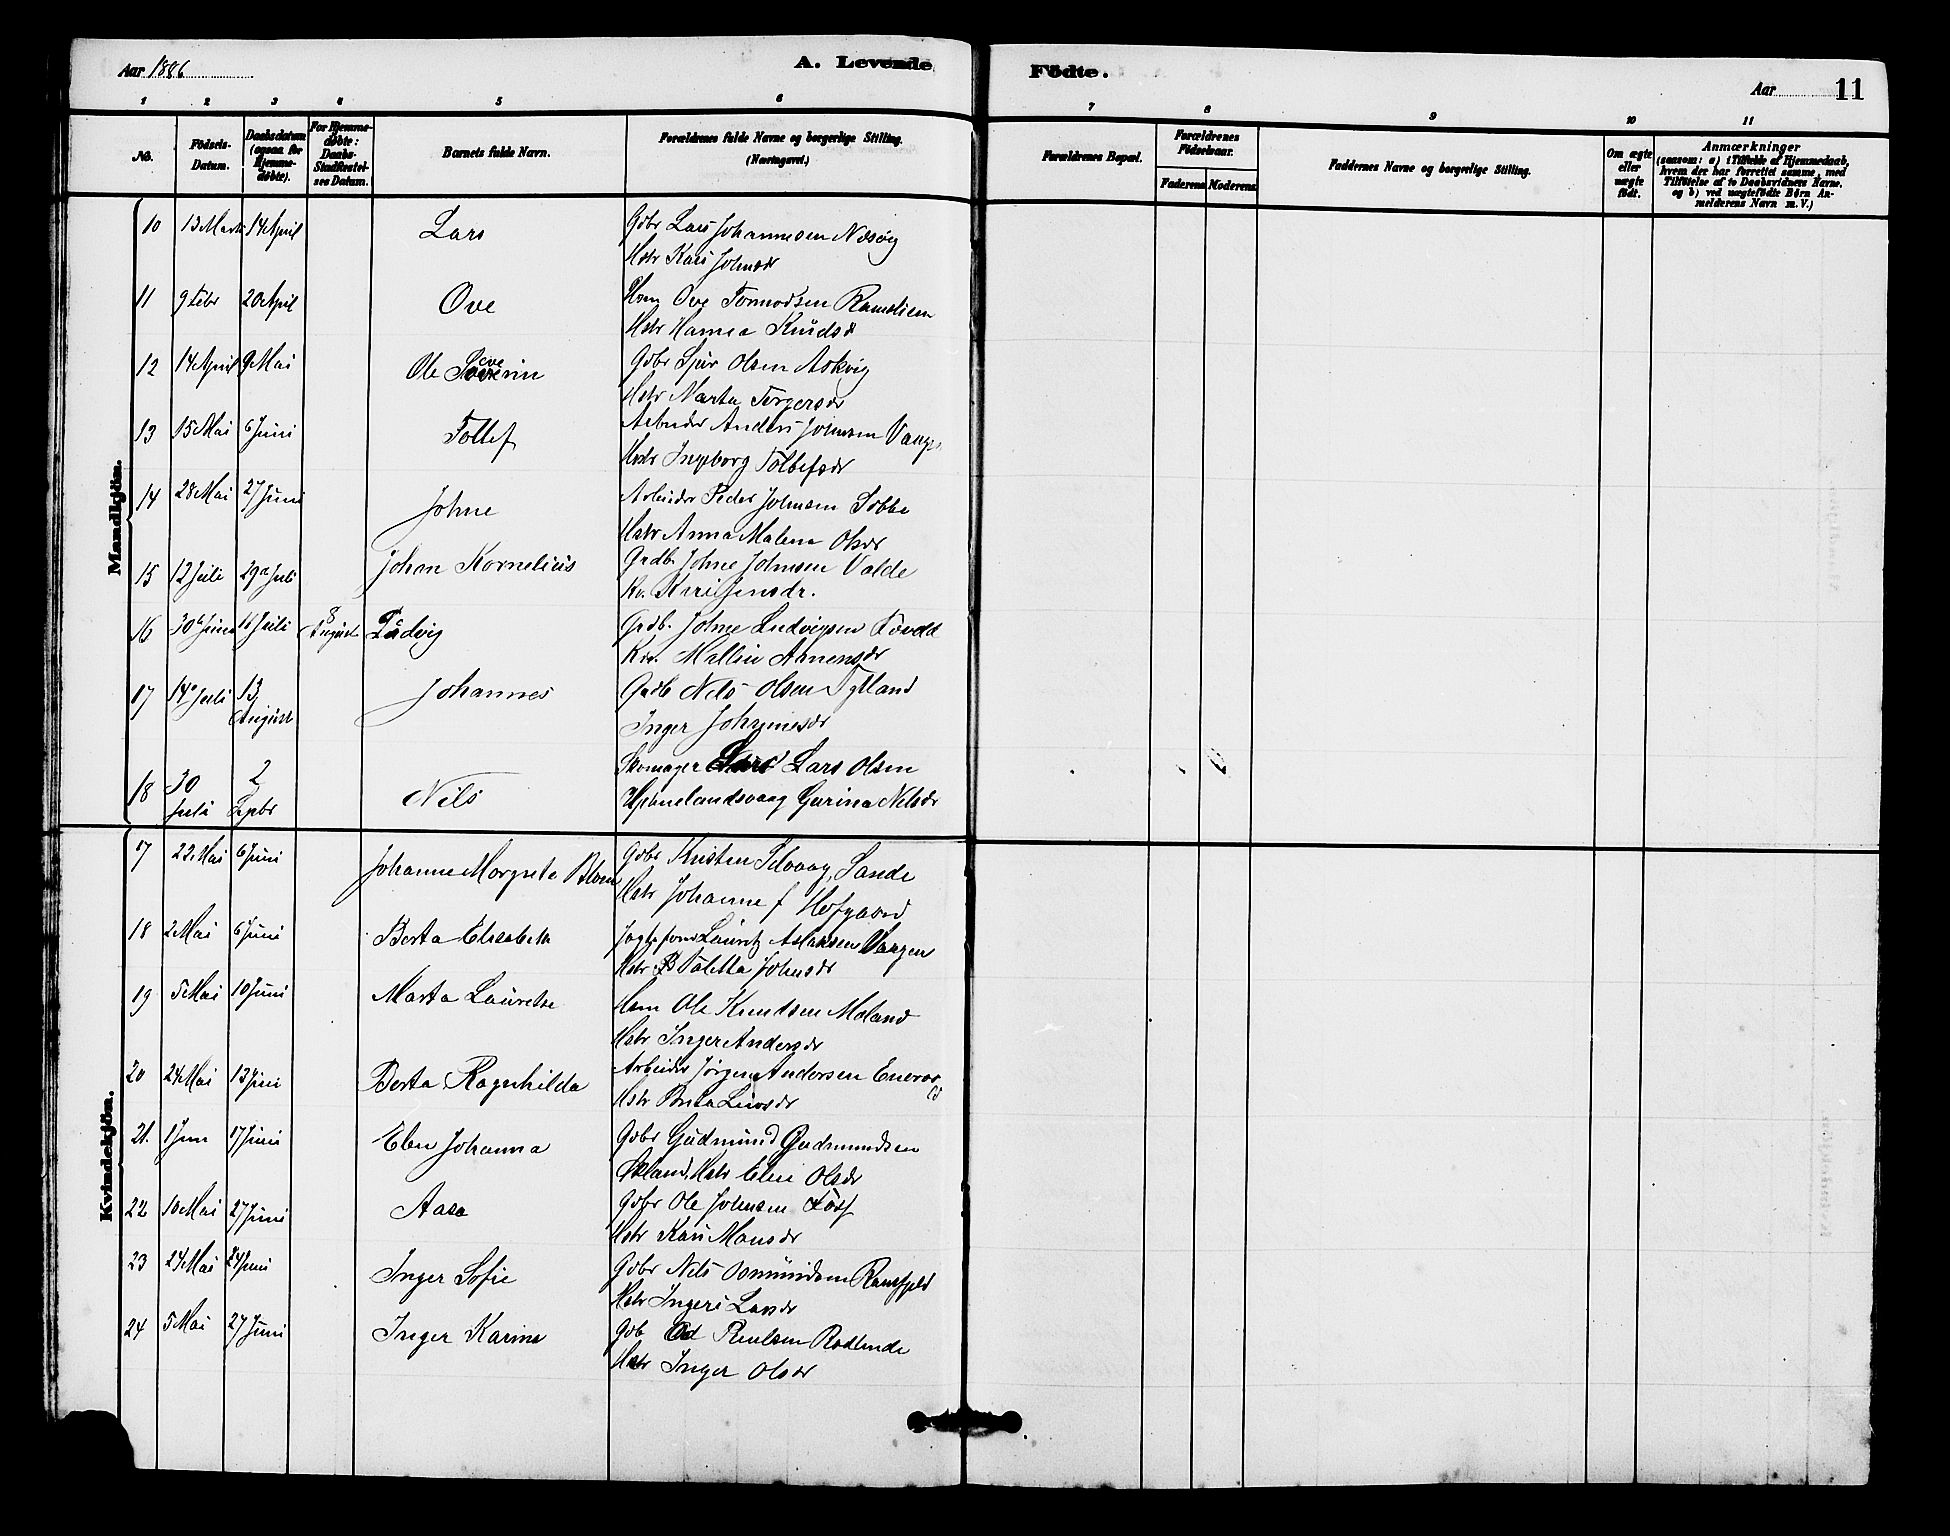 Aar 1886
A. Levende
Födte.
Aar
11
1 2 3 4 5 6 7 8 9 10 11
No.
Födsels-
Datum.
Daabsdatum
(ogsaa for
Hjemme-
döbte).
For Hjemme-
döbte:
Daabs-
Stadfæstel-
ses Datum.
Barnets fulde Navn.
Forældrenes fulde Navne og borgerlige Stilling.
(Næringsvei.)
Forældrenes Bopæl.
Forældrenes
Födselsaar.
Faderens Moderens
Faddernes Navne og borgerlige Stilling.
Om ægte
eller
uægte
födt.
Anmærkninger
(saasom: a) i Tilfælde af Hjemmedaab,
hvem der har forrettet samme, med
Tilföielse af to Daabsvidners Navne,
og b) ved uægtefödte Börn An-
melderens Navn m. V.)
Mandkjön.
10 13 Marts 14 April Lars Gdbr Lars Johannesen Næsvig
Hstr Kari Johnsdr
11 9 Febr 20 April Ove Hsm Ove Tormodsen
Hstr Hanna Knudsd
12 14 April 9 Mai Ole Severin Gdbr Sjur Olsen Askvig
Hstr Marta Torgersdr
13 15 Mai 6 Juni Tollef Arbeider Anders Johnsen
Hstr Ingeborg Tollefsdr
14 28 Mai 27 Juni Johne Arbeider Peder Johnsen
Hstr Anna Malena Olsdr
15 12 Juli 29 Juli Johan Kornelius Grdb. Johne Johnsen Valde
Kv. Kari Jensdr.
16 30 Juni 11 Juli 8 August Ludvig Grdb. Johne Ludvigsen
Kv. Mallin
17 14 Juli 13 August Johannes Grdb Nils Olsen Tytland
Inger Johannesdr
18 30 Juli 2 Septbr Nils Skomager Lars Olsen
Hjelmelandsvaag Gurina Nilsdr
Kvindekjön.
17 22 Mai 6 Juni Johanne Margreta Blom Gdbr Kristen Selvaag, Sande
Hstr Johanne f Hofgaard
18 2 Mai 6 Juni Berta Elisabeth Lauritz Aslaksen Vaagen
Hstr Johnsdr
19 5 Mai 10 Juni Marta Lauretse Hsm Ole Knudsen Moland
Hstr Inger Andersdr
20 24 Mai 13 Juni Berta Ragnhilda Arbeider Jørgen Andersen
Hstr Brita Larsdr
21. 1 Juni 17 Juni Elen Johanna Gdbr Gudmund Gudmundsen
Hstr Elen Olsdr
22 10 Mai 27 Juni Aasa Gdbr Ole Johnsen
Hstr Kari Monsdr
23 24 Mai 24 Juni Inger Sofie Gdbr Nils Osmundsen
Hstr Ingeri Larsdr
24 5 Mai 27 Juni Inger Karine Gdb Od
Hstr Inger Olsdr